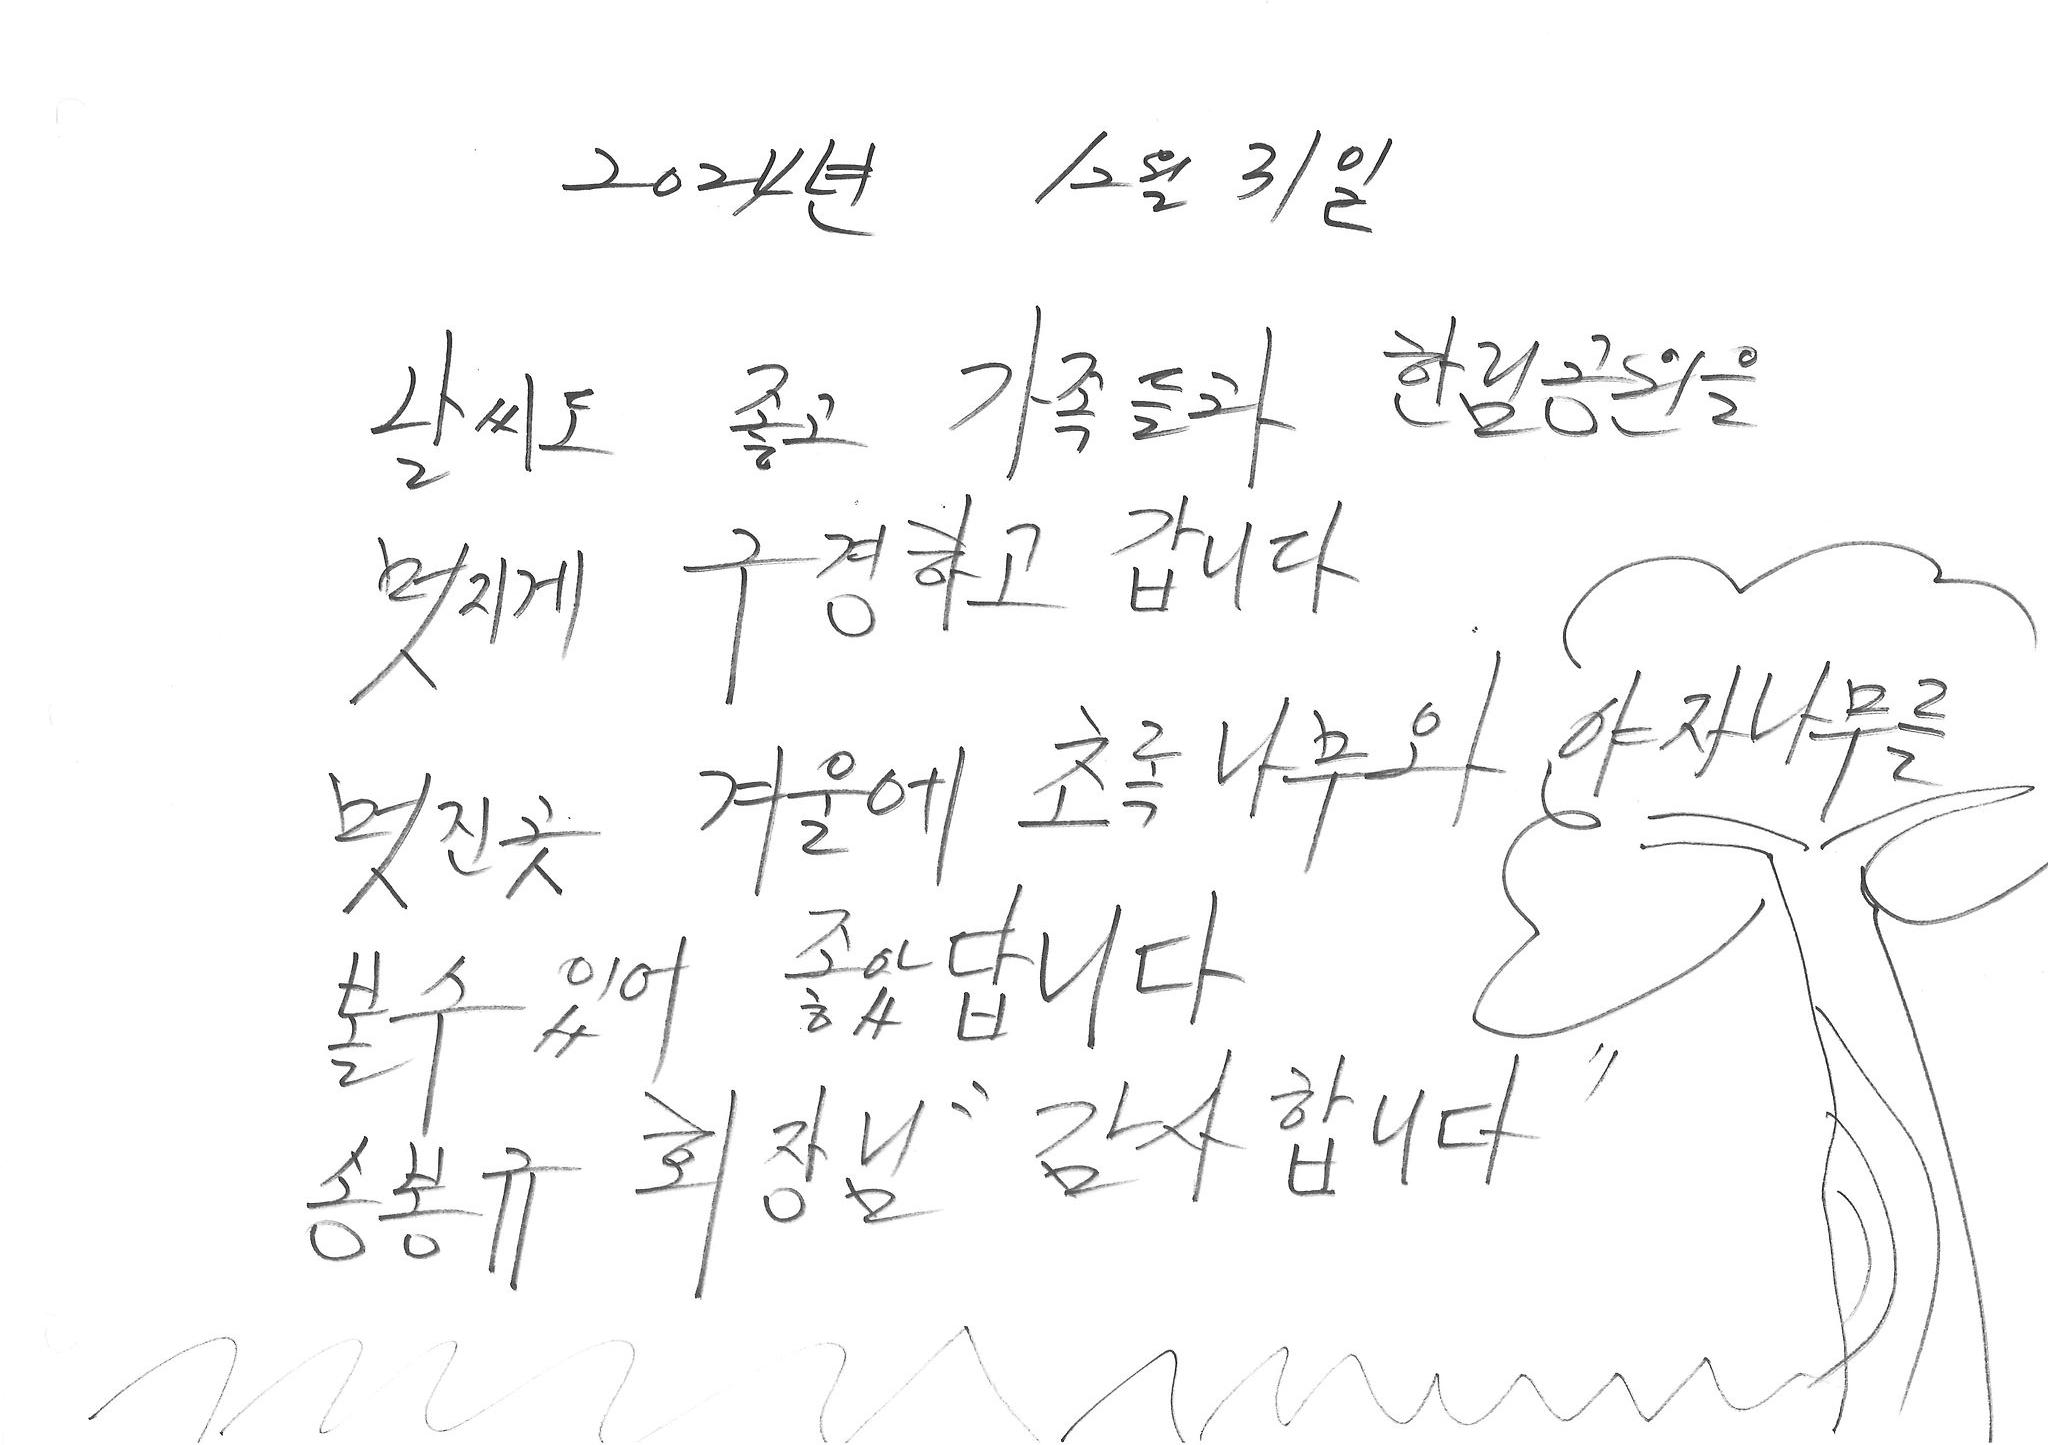 2024년 12월 31일
날씨도 좋고 가족들과 한림공원을
멋지게 구경하고 갑니다
멋진곳 겨울에 초록나무와 야자나무를
볼수있어 좋았답니다
송봉규 회장님 "감사합니다"